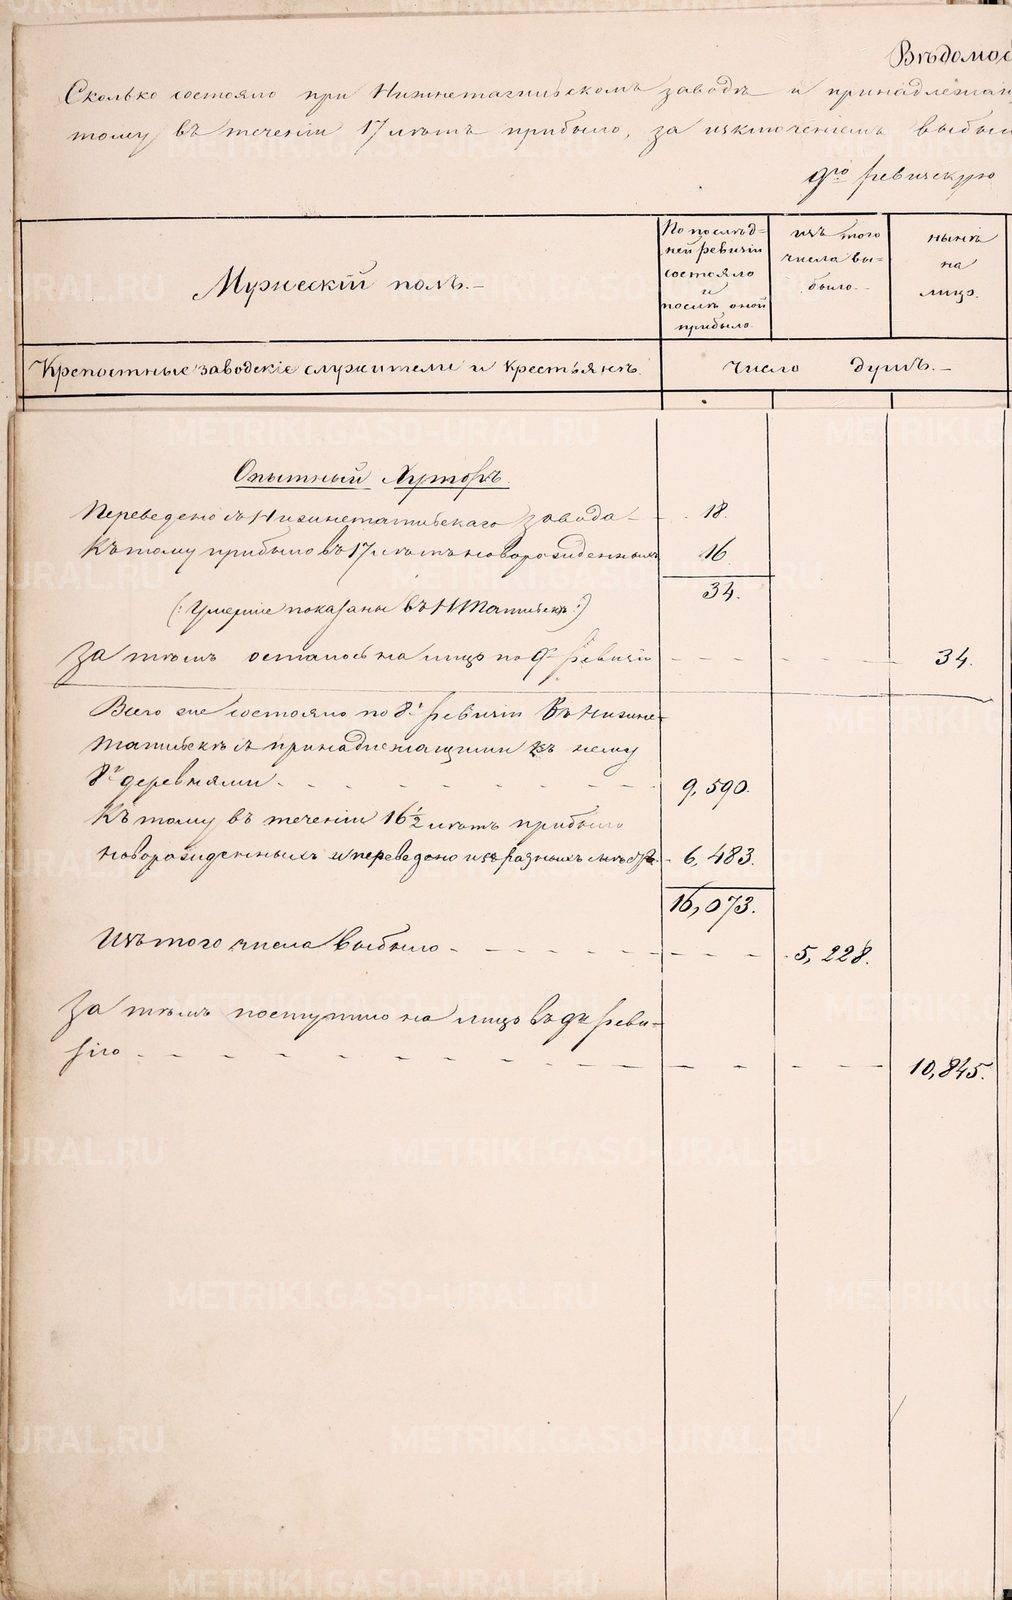 Вѣдомос
Сколько состояло при Нижнетагильскомъ заводѣ и принадлежащ
тому въ теченіи 17 лѣтъ прибыло, за изключеніемъ выбыв
9ю ревизскую
Мужескій полъ.-
По послѣд-
ней ревизіи
состояло
и
послѣ оной
прибыло.
изъ того
числа вы-
было.-
нынѣ
на
лицо.
Крепостные заводскіе служители и крестьянъ.
Число душъ.-
Опытный Хуторъ.
Переведено съ Нижнетагильскаго завода - 18.
Къ тому прибыло въ 17 лѣтъ новорожденныхъ 16.
34.
(:Умершіе показаны въ НТагильск.:)
За тѣмъ осталось на лицо по 9й ревизіи - - - - 34.
Всего же состояло по 8й ревизіи въ Нижне-
тагильскѣ съ принадлежащими къ нему
8ю деревнями - - - - - - - 9,590.
Къ тому въ теченіи 16½ лѣтъ прибыло
новорожденныхъ и переведено изъ разныхъ мѣстъ - 6,483.
16,073.
Изъ того числа выбыло - - - - - - - - 5,228.
За тѣмъ поступило на лицо въ 9ю реви-
зію - - - - - - - - - - - - 10,845.
METRIKI.GASO-URAL.RU